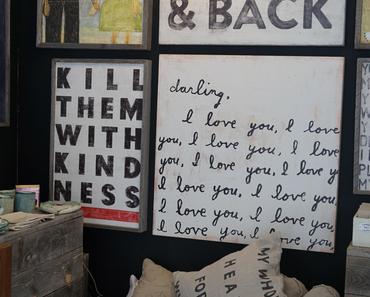 & BACK
KILL
THEM
WITH
KIND
NESS
darling,
I love you, I love
you, I love you, I love
you, I love you, I love y
I love you, I love you,
I love you, I love you,
I love you, I love you
I love you
MY WHO
HEA
FOR